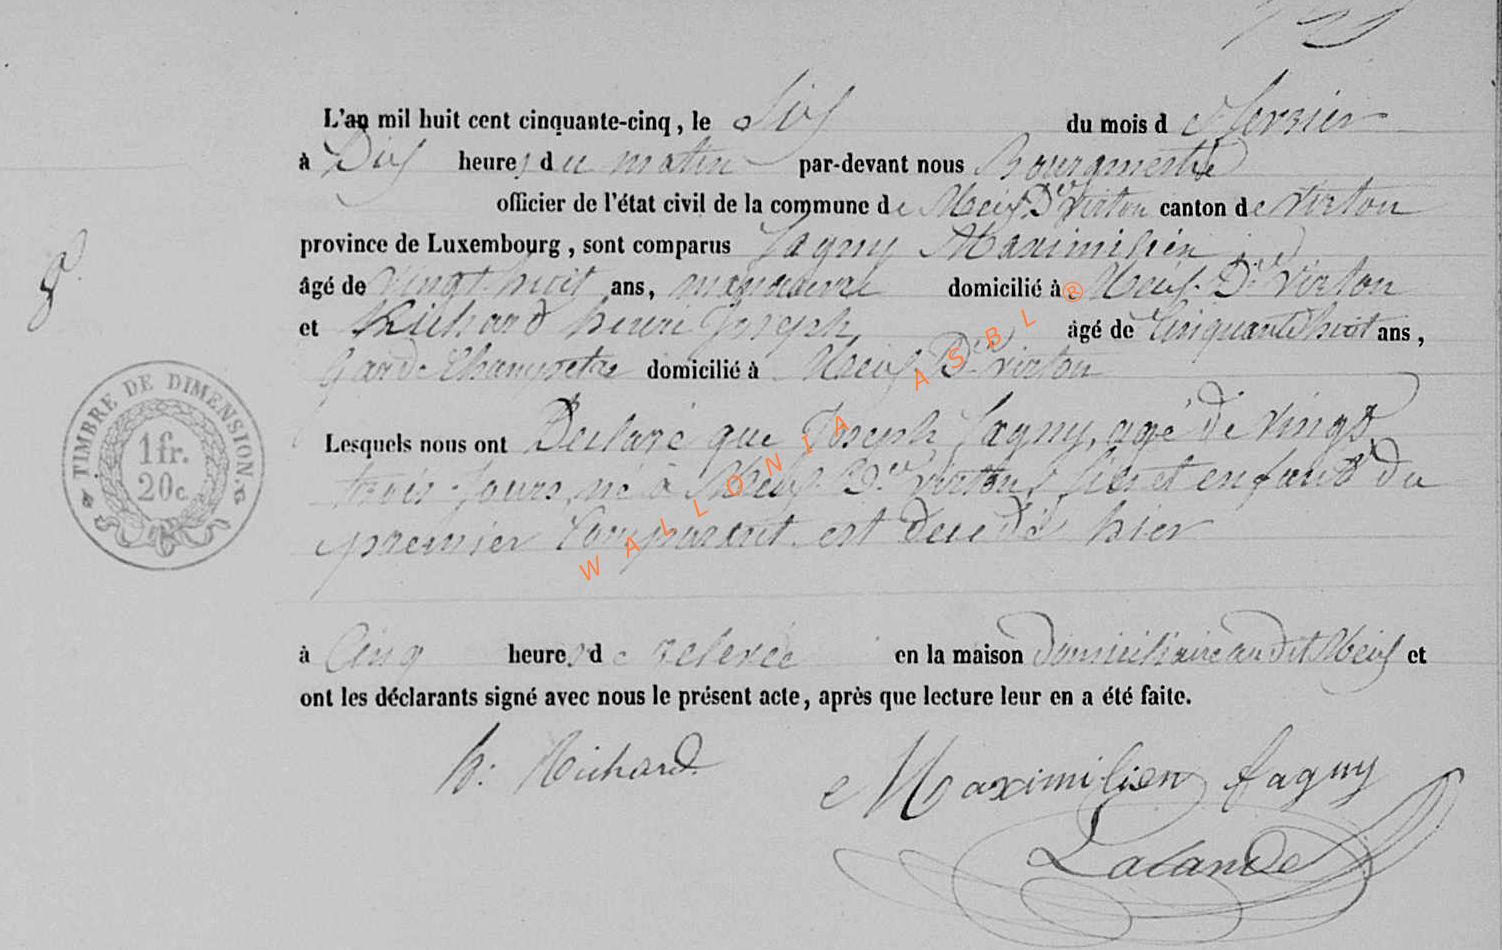 L'an mil huit cent cinquante-cinq, le six du mois de fevrier
à Dix heures du matin par-devant nous Bourgmestre
officier de l'état civil de la commune de Meix Dt Virton canton de Virton
province de Luxembourg, sont comparus Fagny Maximilien
âgé de vingt huit ans, manoeuvre domicilié à Meix Dt Virton
et Richard henri Joseph âgé de Cinquante huit ans,
Garde Champetre domicilié à Meix Dt Virton
Lesquels nous ont Declaré que Joseph Fagny, agé de vingt
trois jours, né à Meix Dt Virton, fils et enfant du
premier Comparant est decedé hier
à Cinq heures de relevée en la maison domiciliaire au dit Meix et
ont les déclarants signé avec nous le présent acte, après que lecture leur en a été faite.
h: Richard
Maximilien fagny
Lalande
8.
TIMBRE DE DIMENSION.
1 fr.
20 c.
WALLONIA ASBL ®